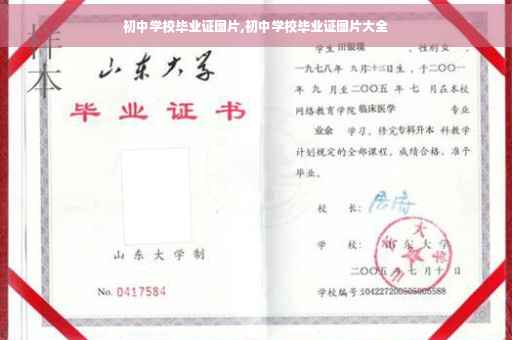 初中学校毕业证图片,初中学校毕业证图片大全
样本
山东大学
毕业证书
山东大学制
No. 0417584
学生 田银瑞 , 性别 女 ,
一九七八年 九月十三日生，于二〇〇一
年 九 月至二〇〇五 年 七 月在本校
网络教育学院 临床医学 专业
业余 学习，修完 专科升本 科教学
计划规定的全部课程，成绩合格，准予
毕业。
校 长：
学 校： 山东大学
二〇〇五 年 七 月 十 日
学校编号:104227200505005588